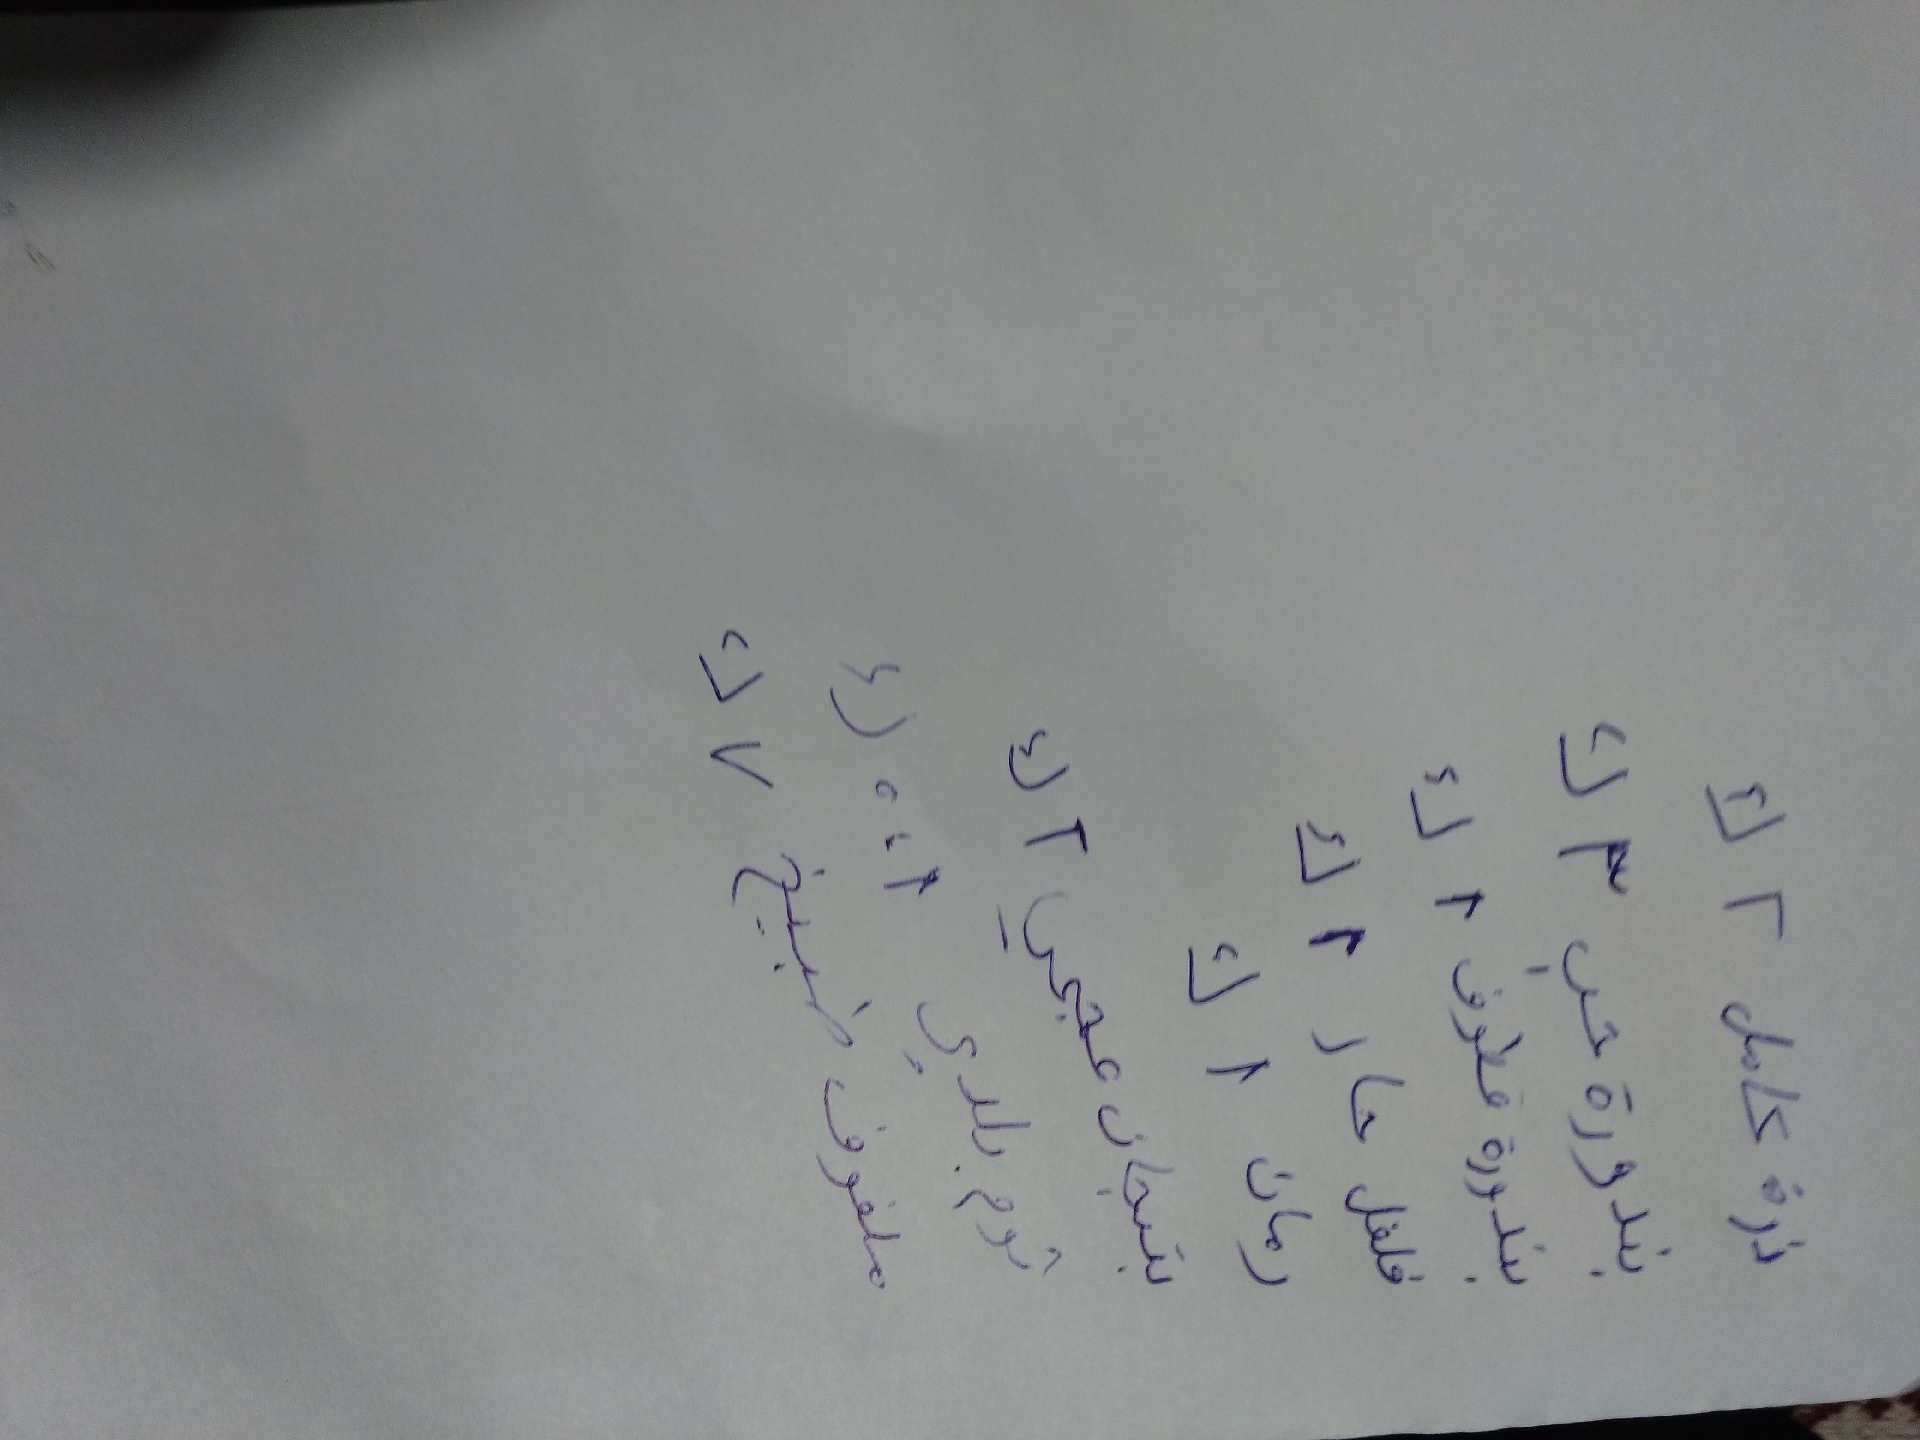 ذرة كامل ٢ ك
بندورة حب ٣ ك
بندورة قطوف ٢ ك
فلفل حار ٢ ك
رمان ١ ك
بتنجان عجمي ٢ ك
ثوم بلدي ك
ملفوف طبيخ ٧ ك